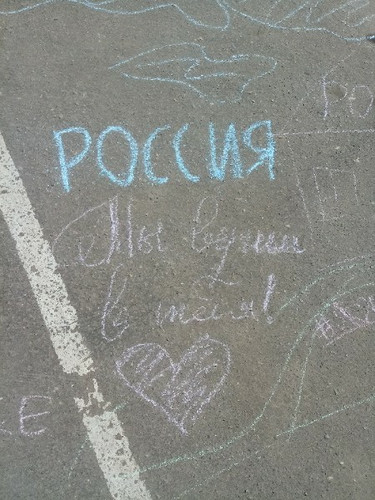 РО
РОССИЯ
Мы верим
в тебя!
СЕ